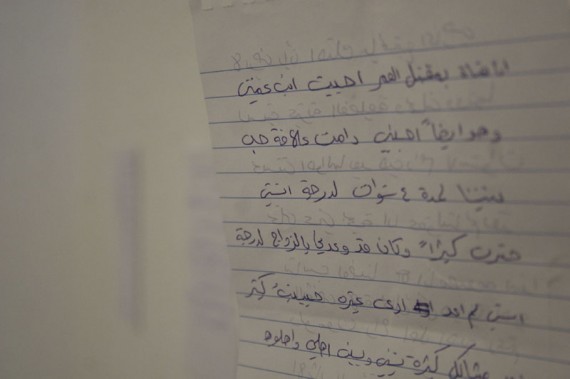 انا فتاة بمقتبل العمر احببت ابن عمتي
وهو ايضاً احبني دامت علاقة حب
بيننا لمدة ٤ سنوات لدرجة انني
كثيراً وكان قد وعدني بالزواج لدرجة
انني لم اعد ارى غيره حبيبته كثر
مشاكل كثيرة بيني وبين اهلي واهلوه